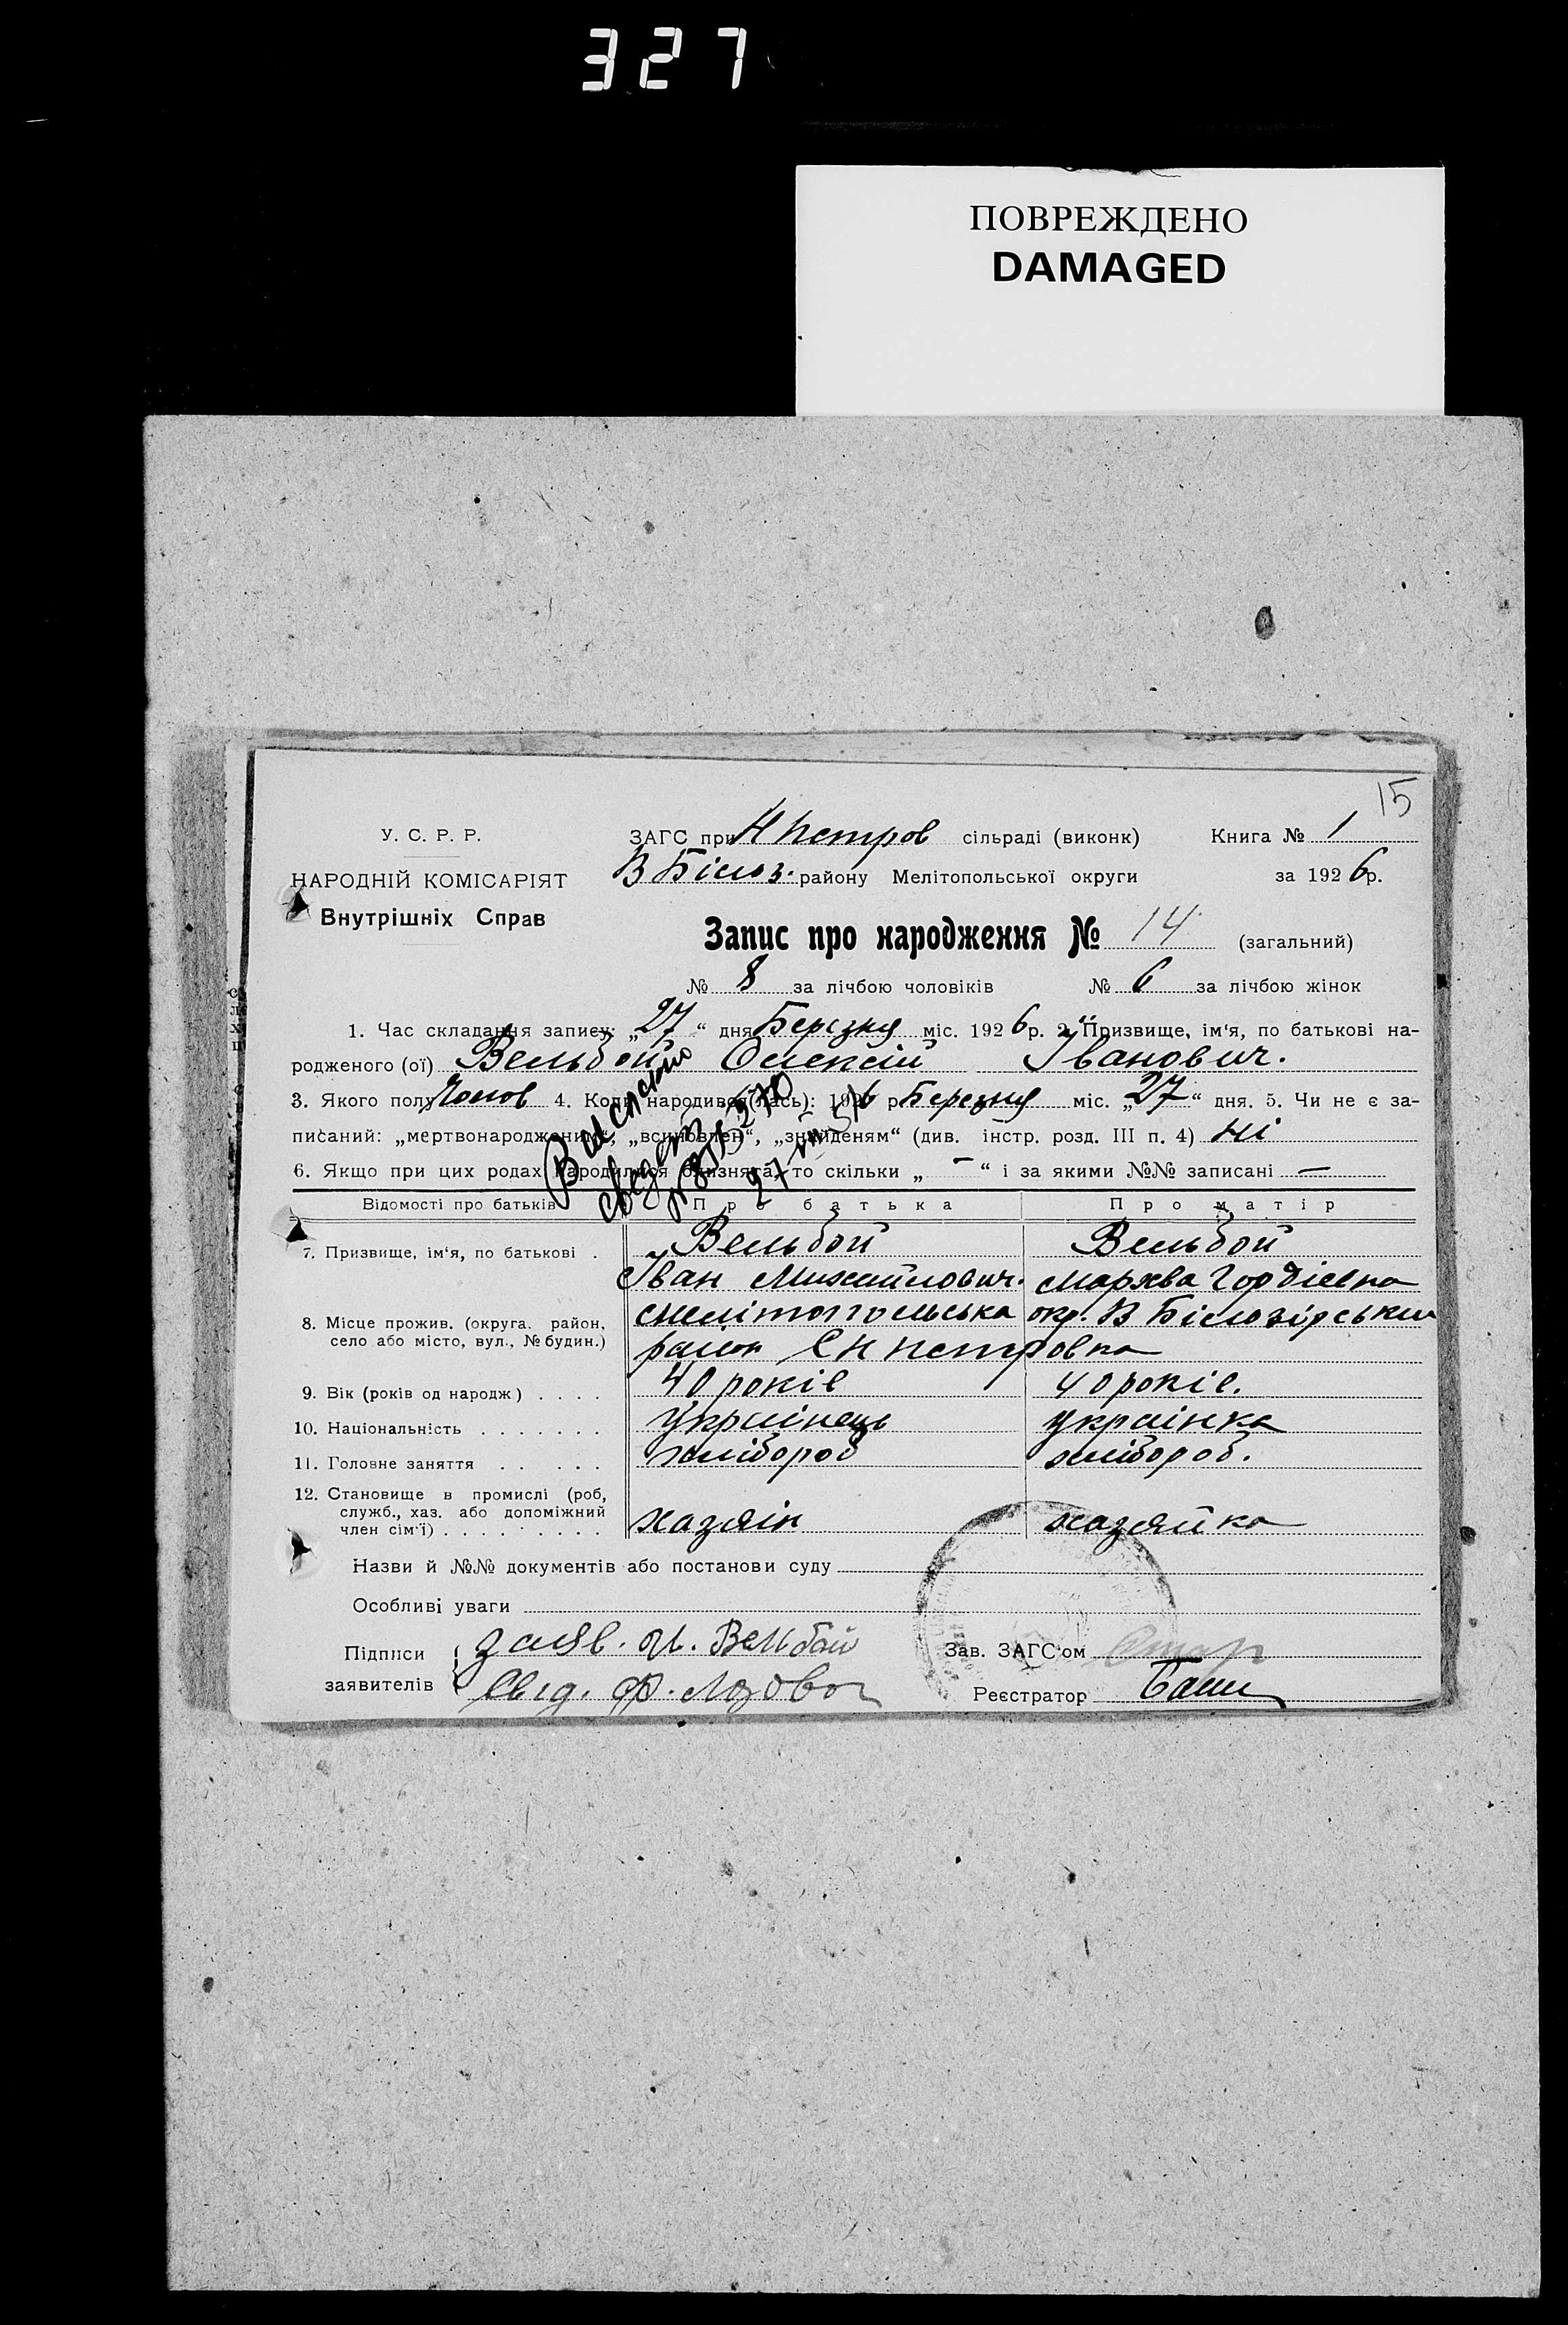 327
ПОВРЕЖДЕНО
DAMAGED
15
У. С. Р. Р.
НАРОДНІЙ КОМІСАРІЯТ
Внутрішніх Справ
ЗАГС при Н Петров сільраді (виконк) Книга № 1
В Білоз. району Мелітопольської округи за 1926 р.
Запис про народження № 14 (загальний)
№ 8 за лічбою чоловіків № 6 за лічбою жінок
1. Час складання запису: „27“ дня Березня міс. 1926 р. 2. Призвище, ім‘я, по батькові на-
родженого (ої) Вельбой Олексій Іванович.
3. Якого полу Чолов 4. Коли народився (лась): 1926 р Березня міс. „27“ дня. 5. Чи не є за-
писаний: „мертвонародженим“, „всиновлен“, „знайденям“ (див. інстр. розд. III п. 4) Ні
6. Якщо при цих родах народилися близнята, то скільки „ – “ і за якими №№ записані —
Відомості про батьків Про батька Про матір
7. Призвище, ім‘я, по батькові . Вельбой Вельбой
Іван Михайлович. Мархва Гордієвна
8. Місце прожив. (округа, район,
село або місто, вул., № будин.)
Мелітопольська окр. В Білозірський
район С Н Петровка
9. Вік (років од народж) . . . . 40 років 40 років.
10. Національність . . . . . . . Українець українка
11. Головне заняття . . . . . хлібороб хлібороб.
12. Становище в промислі (роб,
служб., хаз. або допоміжний
член сім‘ї) . . . . . . . . . хазяін хазяйка
Назви й №№ документів або постанови суду
Особливі уваги
Підписи
заявителів
заяв. И. Велбой
Свід. Ф. Лозовой
Зав. ЗАГС‘ом
Реєстратор